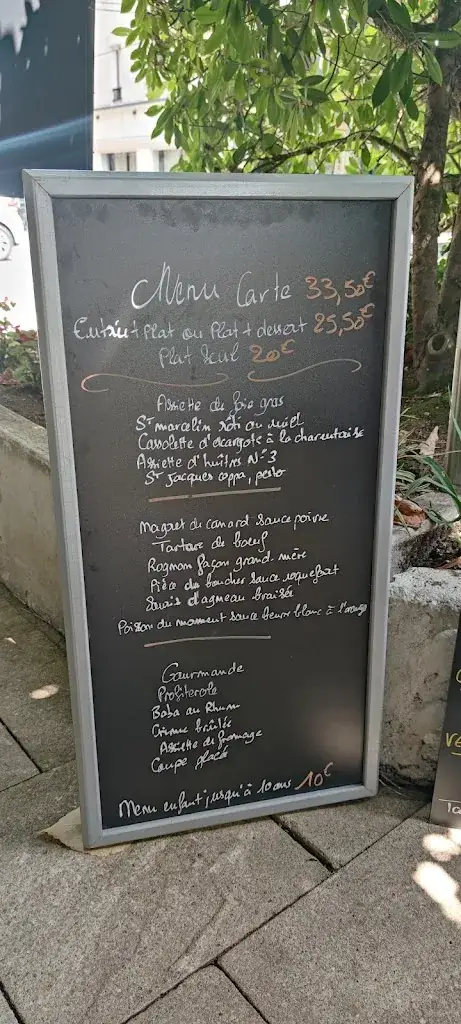 Menu Carte 33,50€
Entrée + Plat ou Plat + dessert 25,50€
Plat Seul 20€
Assiette de foie gras
St marcelin rôti au miel
Cassolette d'escargots à la charentaise
Assiette d'huîtres N°3
St Jacques coppa, pesto
Magret de canard sauce poivre
Tartare de boeuf
Rognon façon grand-mère
Pièce du boucher sauce roquefort
Souris d'agneau braisée
Poisson du moment sauce beurre blanc à l'orange
Gourmande
Profiterole
Baba au Rhum
Crème brûlée
Assiette de fromage
Coupe glacé
Menu enfant jusqu'à 10 ans 10€